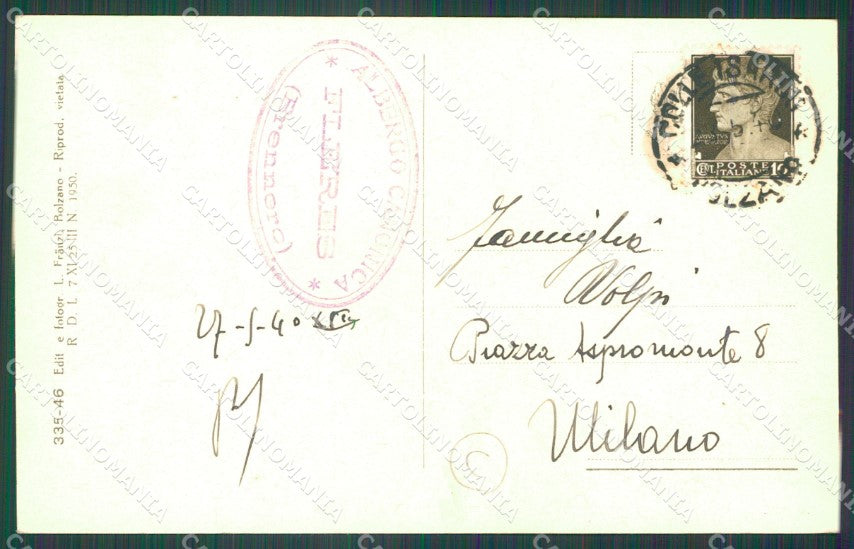 335-46 Edit e fotogr L. Fränzl, Bolzano - Riprod. vietata
R. D. L. 7 XI 25 III N. 1950.
ALBERGO CANONICA
* FLERES *
(Brennero)
27-5-40 XVIII
COLLE ISARCO
BOLZANO
POSTE
ITALIANE
CENT. 10
Famiglia
Volpi
Piazza Aspromonte 8
Milano
CARTOLINOMANIA